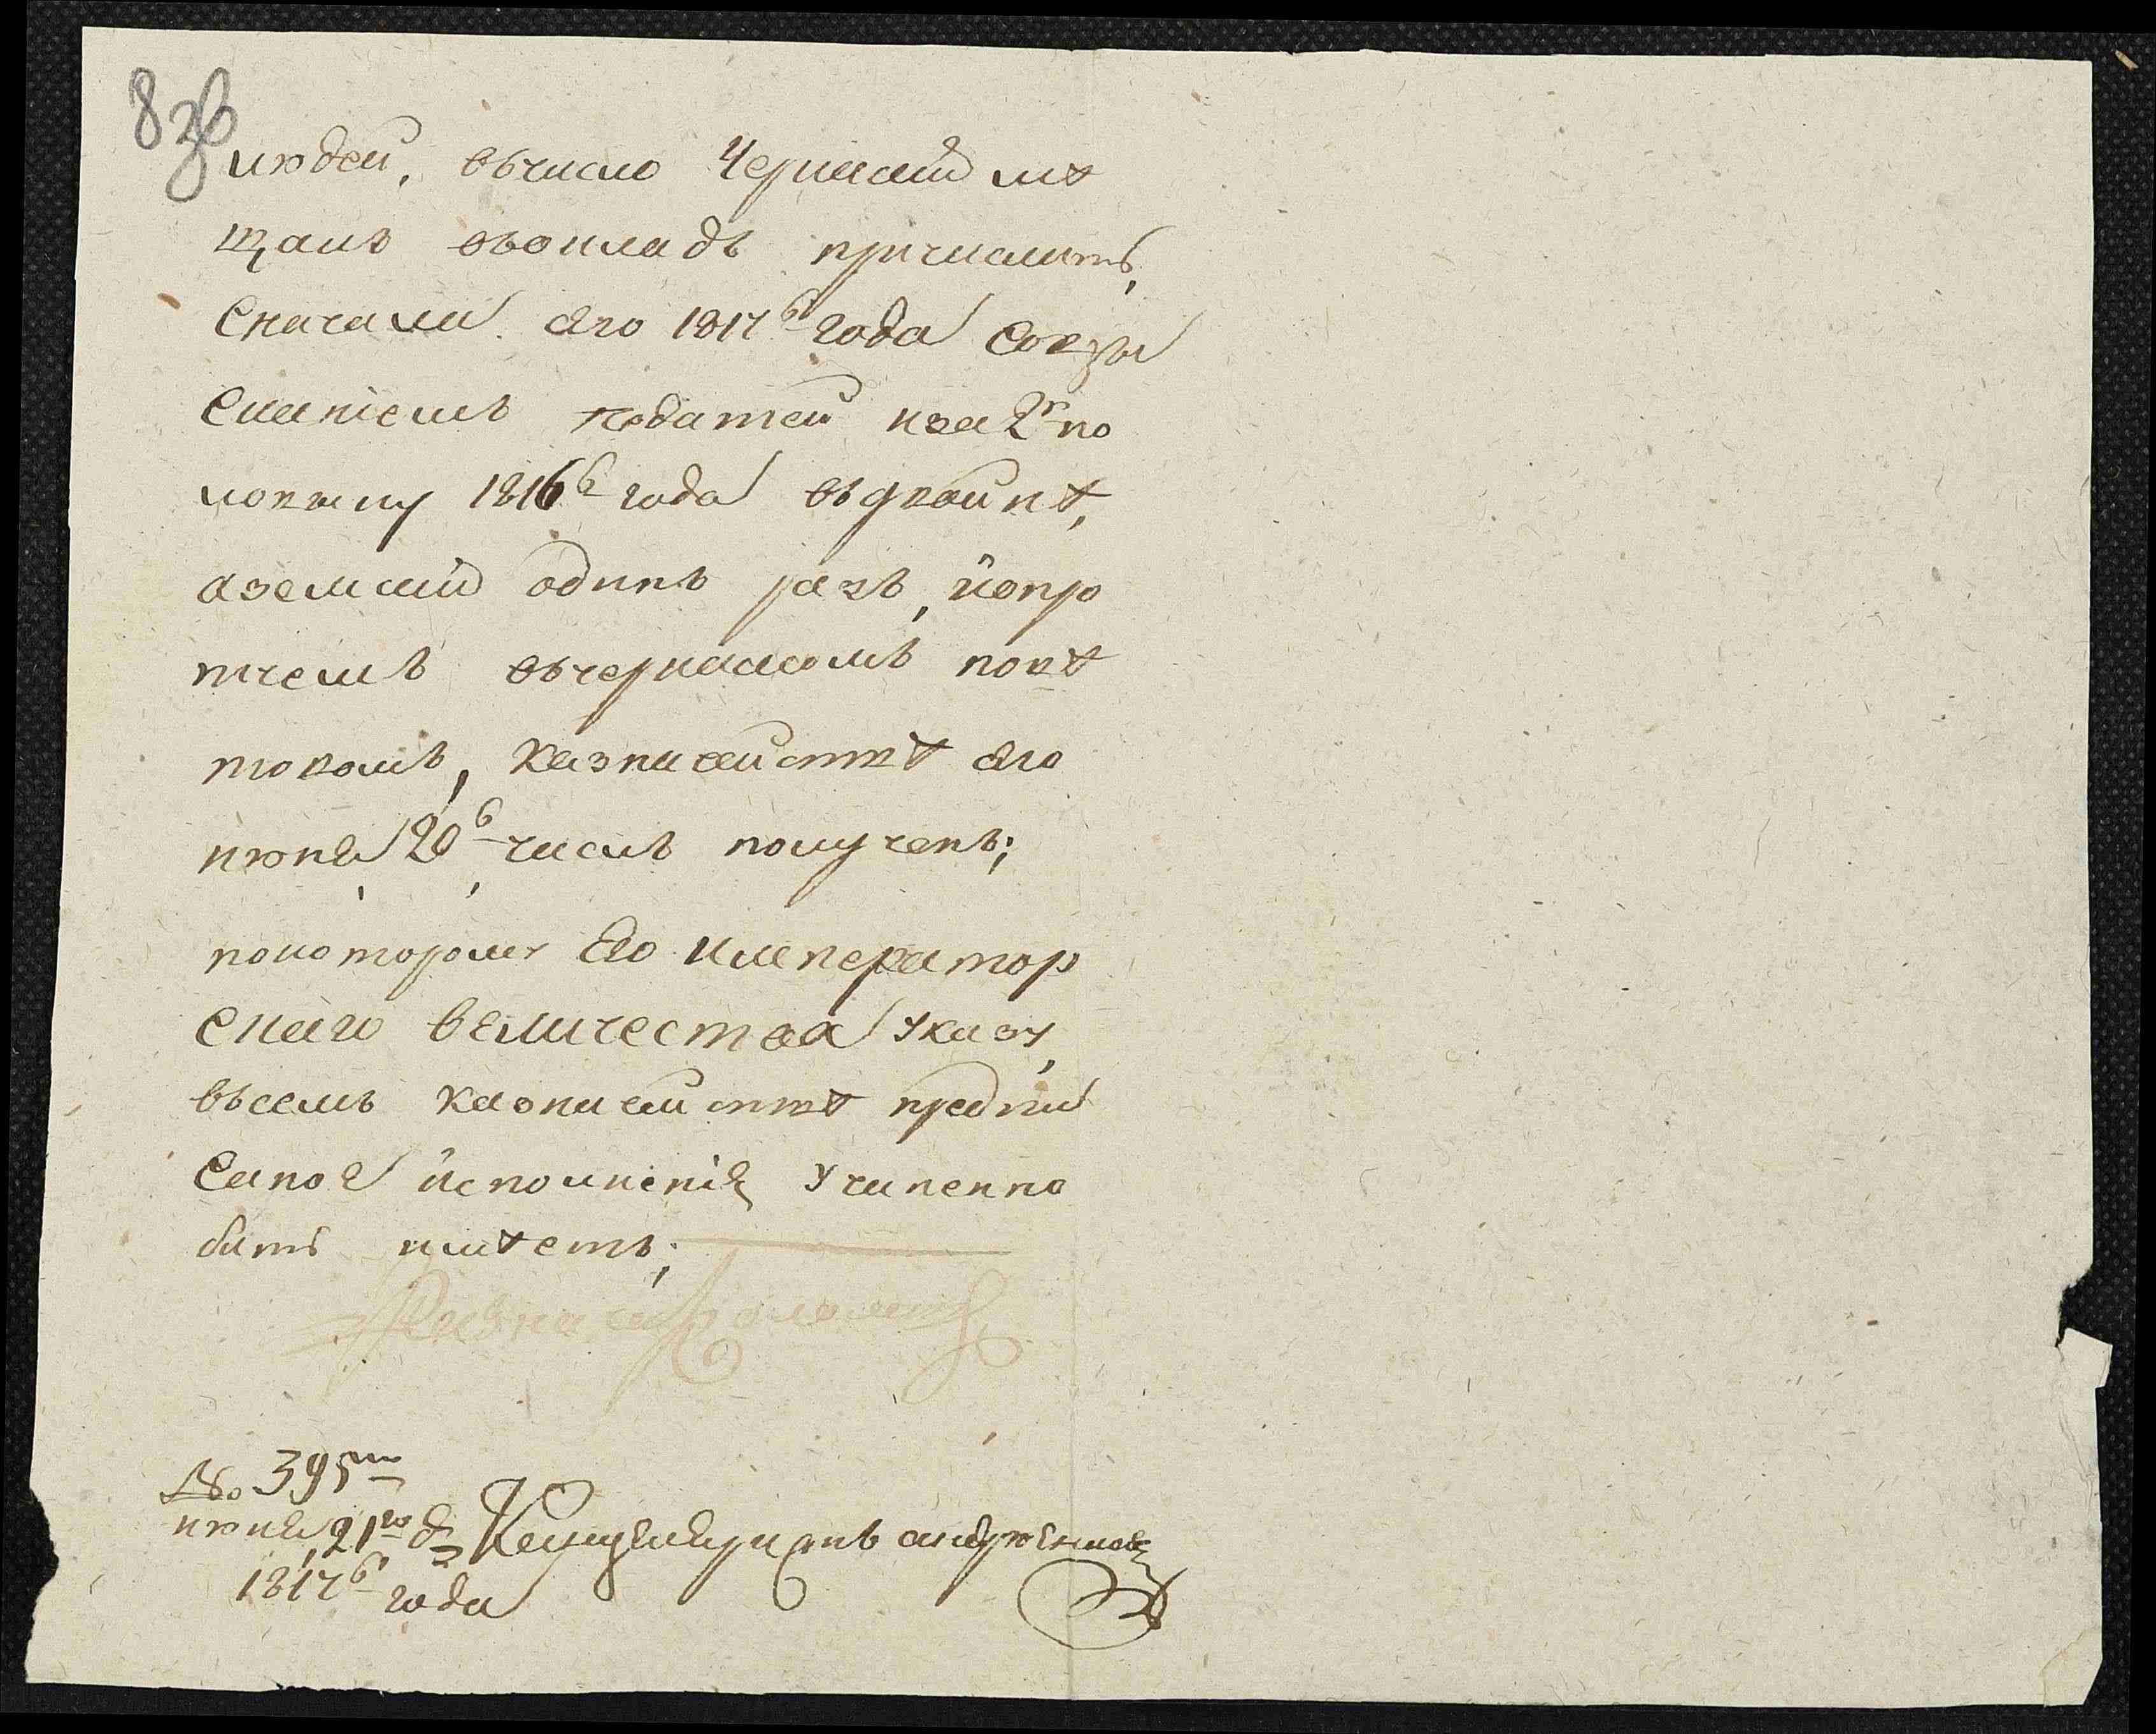 83в
людей, вчисло Черкаскій мѣ
щанъ вокладъ причислить,
Сначала сего 1817г года совзы
сканіемъ податей иза 2ю по
ловину 1816г года вдвойнѣ,
аземскій одинъ разъ, ѝопро
тчемъ вчеркаскомъ повѣ
товомъ, казначействѣ сего
июня 20г числъ полученъ;
покоторому Его император
скаго величества указу,
всемъ казначействѣ предпи
саноя ѝсполненія учиненно
бить имѣетъ;
Казначей
№ 395м
июня 21го д
1817г года